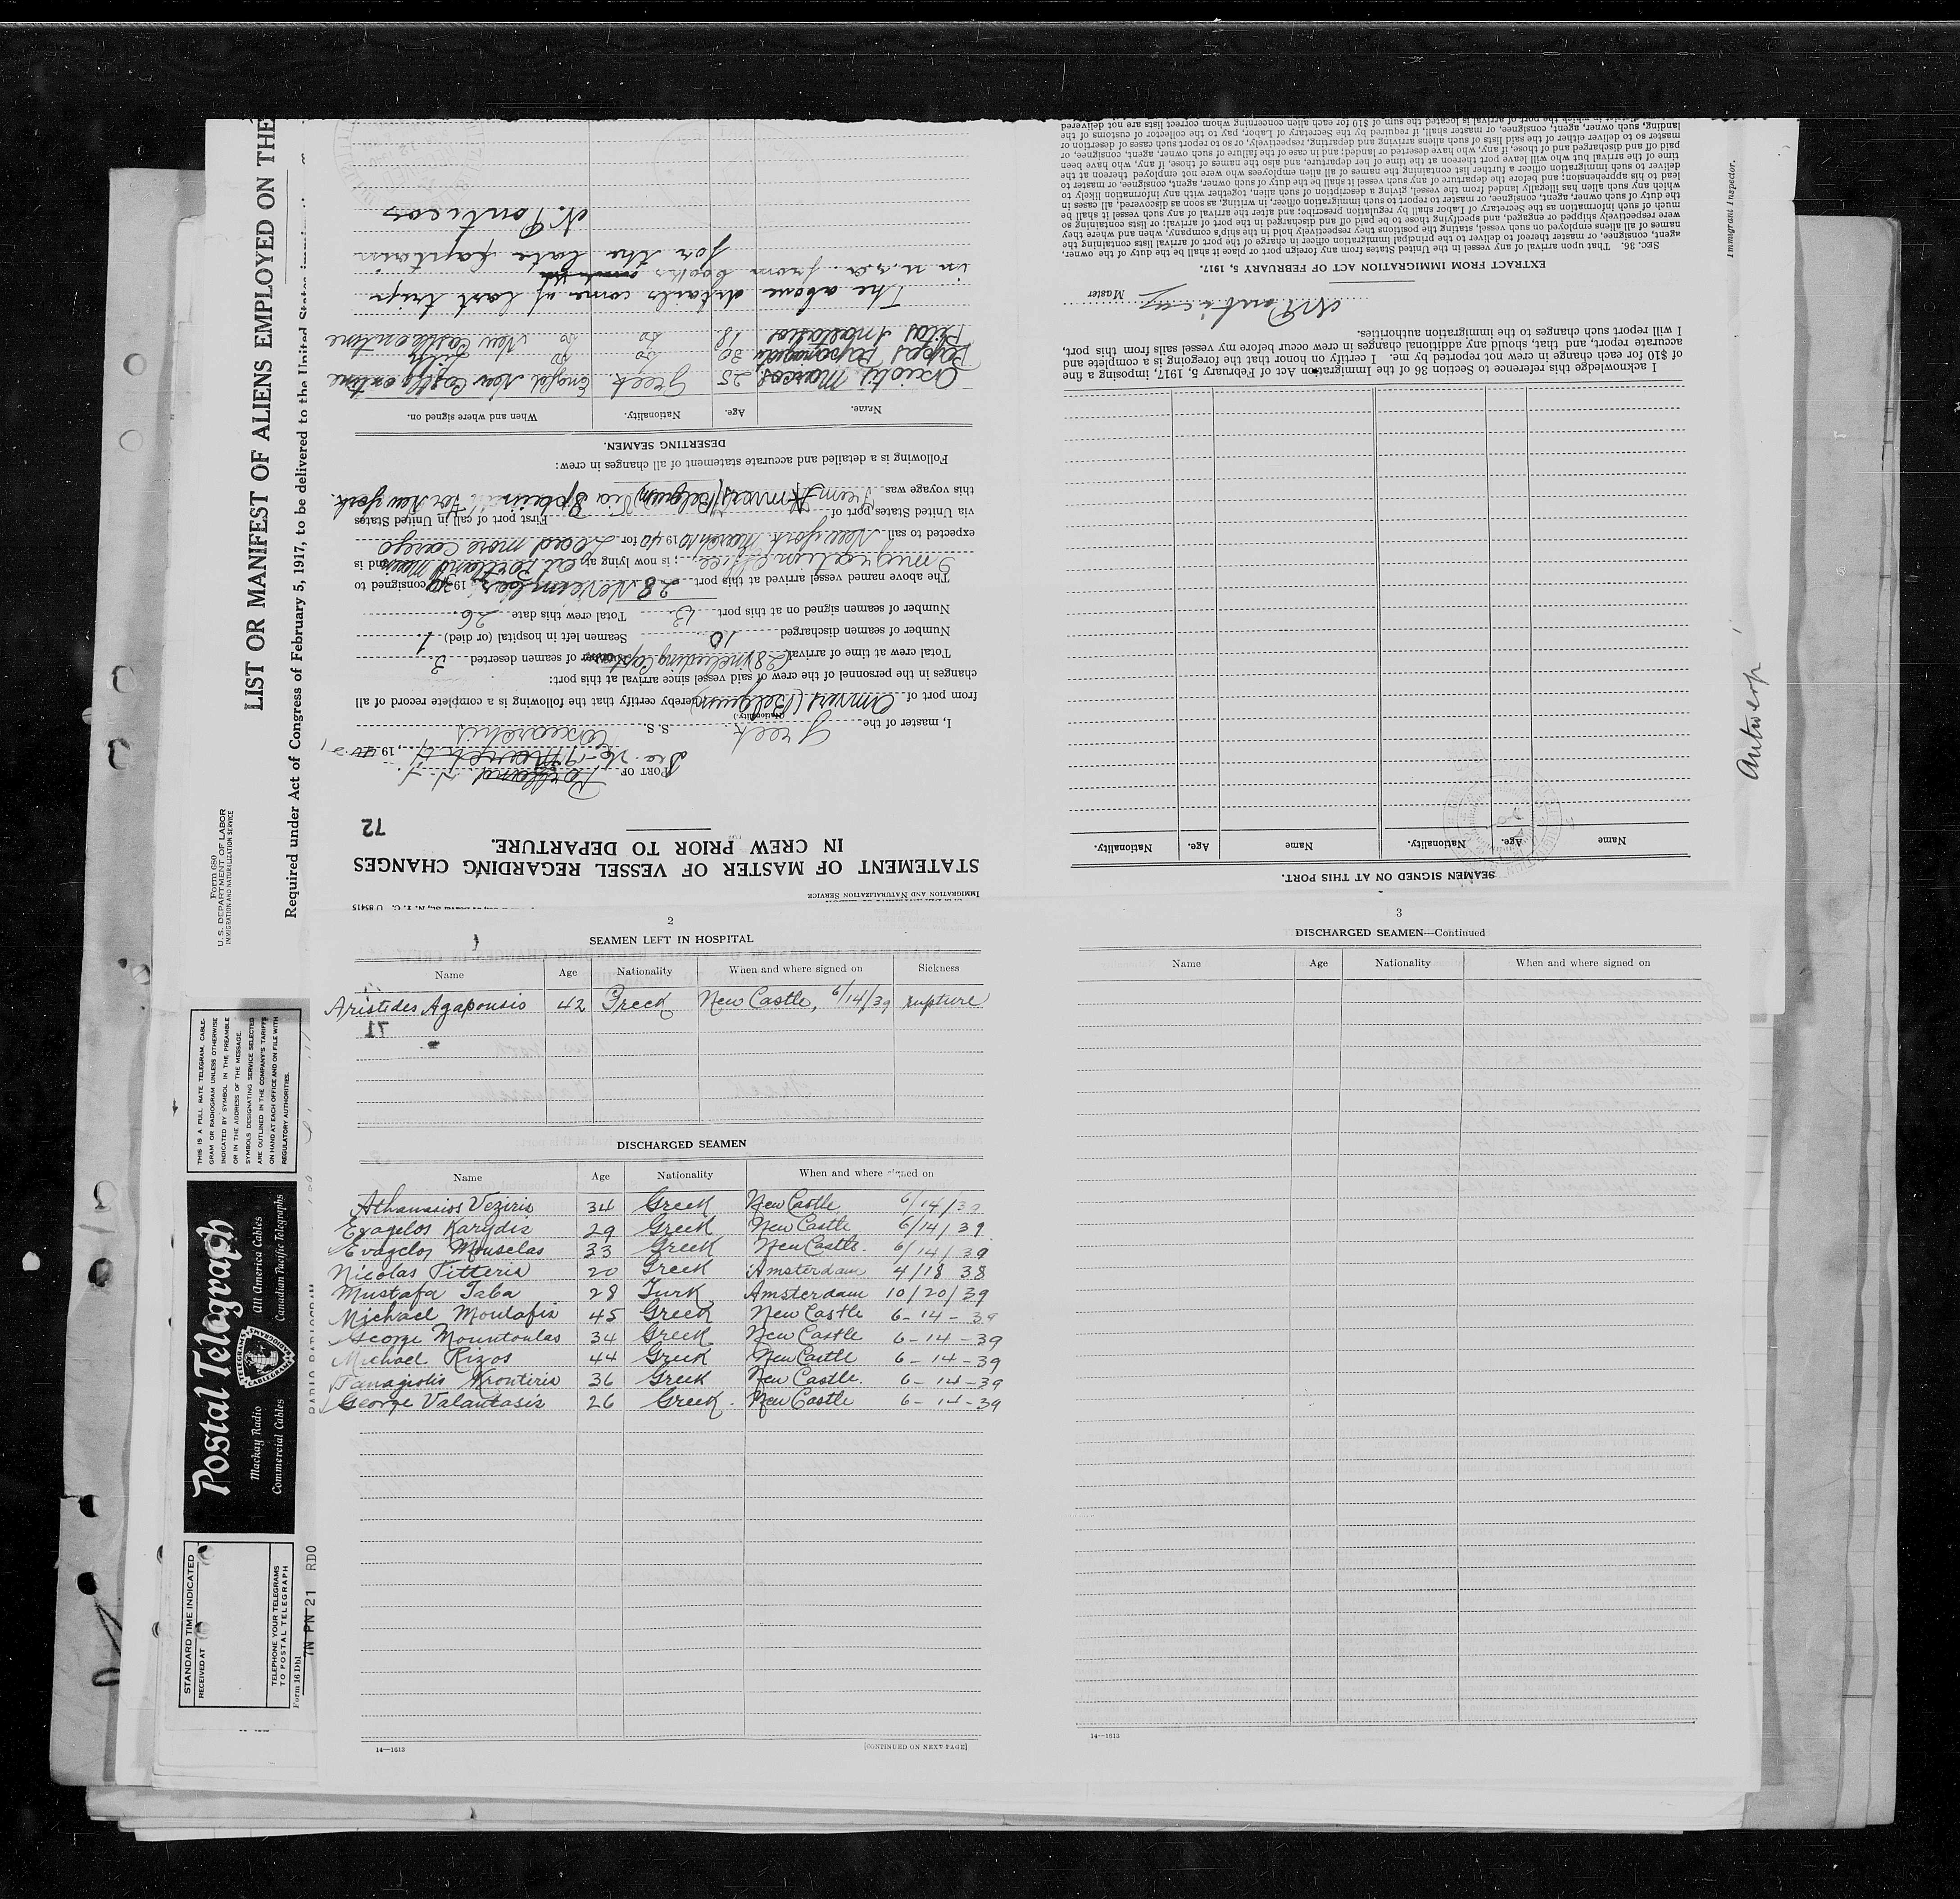 LIST OR MANIFEST OF ALIENS EMPLOYED ON THE
Required under Act of Congress of February 5, 1917, to be delivered to the United States
Form 680
U. S. DEPARTMENT OF LABOR
IMMIGRATION AND NATURALIZATION SERVICE
IMMIGRATION AND NATURALIZATION SERVICE
STATEMENT OF MASTER OF VESSEL REGARDING CHANGES
IN CREW PRIOR TO DEPARTURE.
72
PORT OF Portland
19
I, master of the Greek S. S.
(Nationality.)
from port of Anvers (Belgium) hereby certify that the following is a complete record of all
changes in the personnel of the crew of said vessel since arrival at this port:
Total crew at time of arrival (28) including Capt. Number of seamen deserted 3
Number of seamen discharged 10 Seamen left in hospital (or died) 1
Number of seamen signed on at this port Total crew this date 26
The above named vessel arrived at this port 28 November 19 consigned to
; is now lying at Portland and is
expected to sail New York March 10 1940 for Load more cargo
via United States port of First port of call in United States
this voyage was From Anvers (Belgium) Via Spain For New York.
Following is a detailed and accurate statement of all changes in crew:
DESERTING SEAMEN.
Name. Age. Nationality. When and where signed on.
Marcos 25 Greek New Castle
Pappas 30 do do
18 do do New Castle
The above details come of last trip
in u.s.a. from books
for the late captain
N. Ponticos
SEAMEN SIGNED ON AT THIS PORT.
Name Age. Nationality. Name Age. Nationality.
I acknowledge this reference to Section 36 of the Immigration Act of February 5, 1917, imposing a fine
of $10 for each change in crew not reported by me. I certify on honor that the foregoing is a complete and
accurate report, and, that, should any additional changes in crew occur before my vessel sails from this port,
I will report such changes to the immigration authorities.
N Ponticos Master
EXTRACT FROM IMMIGRATION ACT OF FEBRUARY 5, 1917.
SEC. 36. That upon arrival of any vessel in the United States from any foreign port or place it shall be the duty of the owner,
agent, consignee, or master thereof to deliver to the principal immigration officer in charge of the port of arrival lists containing the
names of all aliens employed on such vessel, stating the positions they respectively hold in the ship's company, when and where they
were respectively shipped or engaged, and specifying those to be paid off and discharged in the port of arrival; or lists containing so
much of such information as the Secretary of Labor shall by regulation prescribe; and after the arrival of any such vessel it shall be
the duty of such owner, agent, consignee, or master to report to such immigration officer, in writing, as soon as discovered, all cases in
which any such alien has illegally landed from the vessel, giving a description of such alien, together with any information likely to
lead to his apprehension; and before the departure of any such vessel it shall be the duty of such owner, agent, consignee, or master to
deliver to such immigration officer a further list containing the names of all alien employees who were not employed thereon at the
time of the arrival but who will leave port thereon at the time of her departure, and also the names of those, if any, who have been
paid off and discharged and of those, if any, who have deserted or landed; and in case of the failure of such owner, agent, consignee, or
master so to deliver either of the said lists of such aliens arriving and departing, respectively, or so to report such cases of desertion or
landing, such owner, agent, consignee, or master shall, if required by the Secretary of Labor, pay to the collector of customs of the
customs district in which the port of arrival is located the sum of $10 for each alien concerning whom correct lists are not delivered
Immigrant Inspector.
Antwerp
2
SEAMEN LEFT IN HOSPITAL
Name Age Nationality When and where signed on Sickness
Aristides Agapousis 42 Greek New Castle, 6/14/39 rupture
71
DISCHARGED SEAMEN
Name Age Nationality When and where signed on
Athanasios Veziris 34 Greek New Castle, 6/14/39
Evagelos Karydis 29 Greek New Castle 6/14/39
Evagelos Mouselas 33 Greek New Castle. 6/14/39
Nicolas Pitteris 20 Greek Amsterdam 4/18 38
Mustafa Taba 28 Turk Amsterdam 10/20/39
Michael Moutafis 45 Greek New Castle 6-14-39
George Mountoulas 34 Greek New Castle 6-14-39
Michael Rizos 44 Greek New Castle 6-14-39
Panagiotis Krontiris 36 Greek New Castle. 6-14-39
George Valantasis 26 Greek. New Castle 6-14-39
14—1613
[CONTINUED ON NEXT PAGE]
3
DISCHARGED SEAMEN—Continued
Name Age Nationality When and where signed on
14—1613
THIS IS A FULL RATE TELEGRAM, CABLE-
GRAM OR RADIOGRAM UNLESS OTHERWISE
INDICATED BY SYMBOL IN THE PREAMBLE
OR IN THE ADDRESS OF THE MESSAGE.
SYMBOLS DESIGNATING SERVICE SELECTED
ARE OUTLINED IN THE COMPANY'S TARIFFS
ON HAND AT EACH OFFICE AND ON FILE WITH
REGULATORY AUTHORITIES.
Postal Telegraph
Mackay Radio
Commercial Cables
All America Cables
Canadian Pacific Telegraphs
STANDARD TIME INDICATED
RECEIVED AT
TELEPHONE YOUR TELEGRAMS
TO POSTAL TELEGRAPH
Form 16 Dbl
7N PN 21 RDO